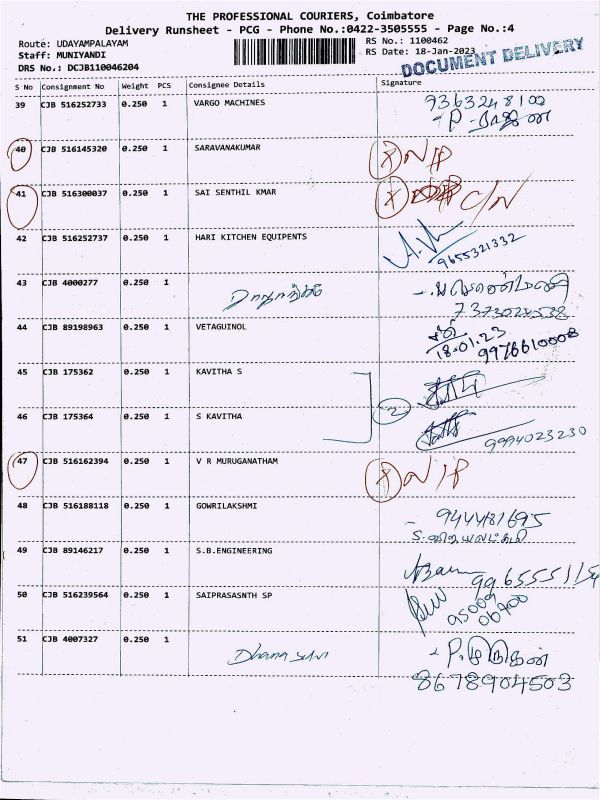 THE PROFESSIONAL COURIERS, Coimbatore
Delivery Runsheet - PCG - Phone No.:0422-3505555 - Page No.:4
Route: UDAYAMPALAYAM
RS No.: 1100462
Staff: MUNIYANDI
RS Date: 18-Jan-2023
DRS No.: DCJB110046204
DOCUMENT DELIVERY
S No Consignment No Weight PCS Consignee Details Signature
39 CJB 516252733 0.250 1 VARGO MACHINES 7363248102
40 CJB 516145320 0.250 1 SARAVANAKUMAR
41 CJB 516300037 0.250 1 SAI SENTHIL KMAR C/N
42 CJB 516252737 0.250 1 HARI KITCHEN EQUIPENTS
9655321332
43 CJB 4000277 0.250 1
7373024538
44 CJB 89198963 0.250 1 VETAGUINOL
18.01.23 9976610008
45 CJB 175362 0.250 1 KAVITHA S
2
46 CJB 175364 0.250 1 S KAVITHA
9994023230
47 CJB 516162394 0.250 1 V R MURUGANATHAM
48 CJB 516188118 0.250 1 GOWRILAKSHMI
9444481695
49 CJB 89146217 0.250 1 S.B.ENGINEERING
50 CJB 516239564 0.250 1 SAIPRASASNTH SP
51 CJB 4007327 0.250 1 - P. முருகன்
8678904503